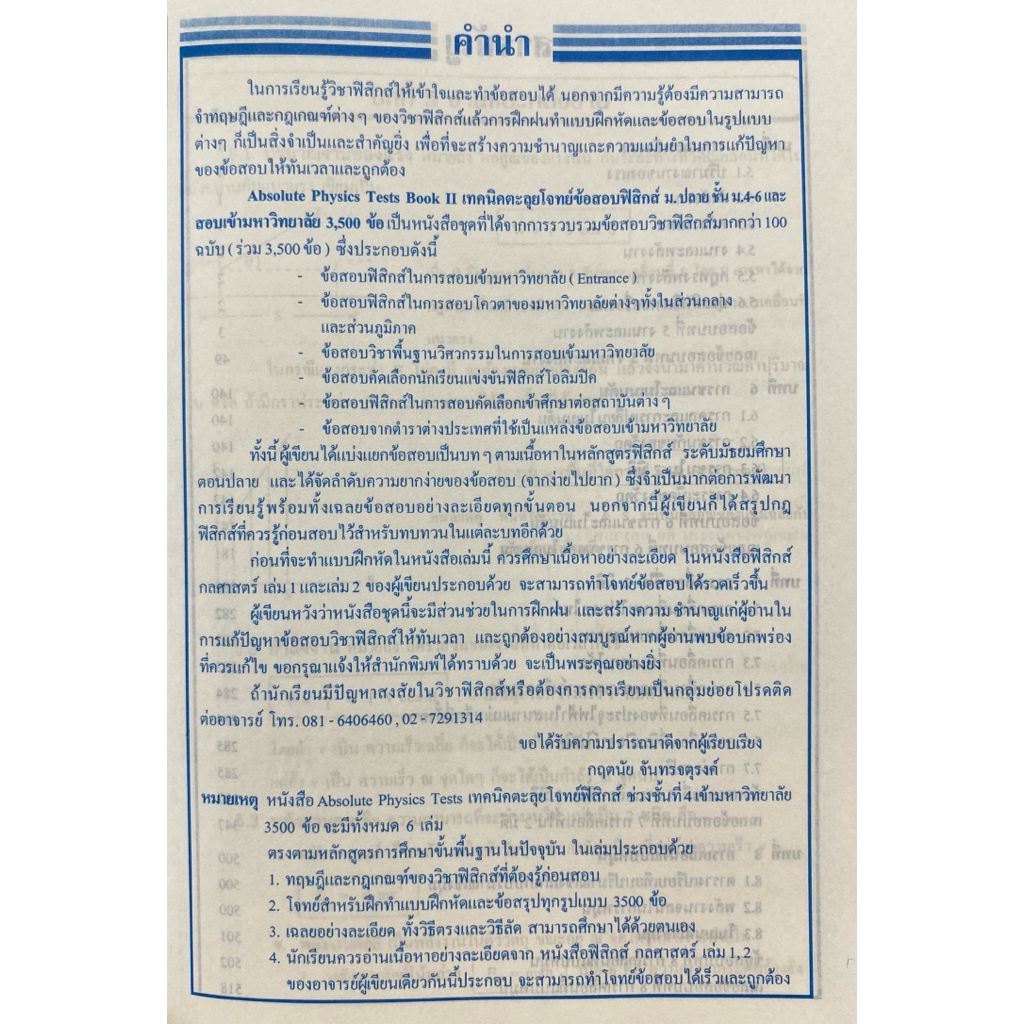 คำนำ
ในการเรียนรู้วิชาฟิสิกส์ให้เข้าใจและทำข้อสอบได้ นอกจากมีความรู้ต้องมีความสามารถ
จำทฤษฎีและกฎเกณฑ์ต่าง ๆ ของวิชาฟิสิกส์แล้วการฝึกฝนทำแบบฝึกหัดและข้อสอบในรูปแบบ
ต่างๆ ก็เป็นสิ่งจำเป็นและสำคัญยิ่ง เพื่อที่จะสร้างความชำนาญและความแม่นยำในการแก้ปัญหา
ของข้อสอบให้ทันเวลาและถูกต้อง
Absolute Physics Tests Book II เทคนิคตะลุยโจทย์ข้อสอบฟิสิกส์ ม. ปลาย ชั้น ม.4-6 และ
สอบเข้ามหาวิทยาลัย 3,500 ข้อ เป็นหนังสือชุดที่ได้จากการรวบรวมข้อสอบวิชาฟิสิกส์มากกว่า 100
ฉบับ ( ร่วม 3,500 ข้อ ) ซึ่งประกอบดังนี้
- ข้อสอบฟิสิกส์ในการสอบเข้ามหาวิทยาลัย ( Entrance )
- ข้อสอบฟิสิกส์ในการสอบโควตาของมหาวิทยาลัยต่างๆทั้งในส่วนกลาง
และส่วนภูมิภาค
- ข้อสอบวิชาพื้นฐานวิศวกรรมในการสอบเข้ามหาวิทยาลัย
- ข้อสอบคัดเลือกนักเรียนแข่งขันฟิสิกส์โอลิมปิค
- ข้อสอบฟิสิกส์ในการสอบคัดเลือกเข้าศึกษาต่อสถาบันต่าง ๆ
- ข้อสอบจากตำราต่างประเทศที่ใช้เป็นแหล่งข้อสอบเข้ามหาวิทยาลัย
ทั้งนี้ ผู้เขียนได้แบ่งแยกข้อสอบเป็นบท ๆ ตามเนื้อหาในหลักสูตรฟิสิกส์ ระดับมัธยมศึกษา
ตอนปลาย และได้จัดลำดับความยากง่ายของข้อสอบ (จากง่ายไปยาก) ซึ่งจำเป็นมากต่อการพัฒนา
การเรียนรู้ พร้อมทั้งเฉลยข้อสอบอย่างละเอียดทุกขั้นตอน นอกจากนี้ผู้เขียนก็ได้สรุปกฎ
ฟิสิกส์ที่ควรรู้ก่อนสอบไว้สำหรับทบทวนในแต่ละบทอีกด้วย
ก่อนที่จะทำแบบฝึกหัดในหนังสือเล่มนี้ ควรศึกษาเนื้อหาอย่างละเอียด ในหนังสือฟิสิกส์
กลศาสตร์ เล่ม 1 และเล่ม 2 ของผู้เขียนประกอบด้วย จะสามารถทำโจทย์ข้อสอบได้รวดเร็วขึ้น
ผู้เขียนหวังว่าหนังสือชุดนี้จะมีส่วนช่วยในการฝึกฝน และสร้างความ ชำนาญแก่ผู้อ่านใน
การแก้ปัญหาข้อสอบวิชาฟิสิกส์ให้ทันเวลา และถูกต้องอย่างสมบูรณ์หากผู้อ่านพบข้อบกพร่อง
ที่ควรแก้ไข ขอกรุณาแจ้งให้สำนักพิมพ์ได้ทราบด้วย จะเป็นพระคุณอย่างยิ่ง
ถ้านักเรียนมีปัญหาสงสัยในวิชาฟิสิกส์หรือต้องการการเรียนเป็นกลุ่มย่อยโปรดติด
ต่ออาจารย์ โทร. 081 - 6406460 , 02 - 7291314
ขอได้รับความปรารถนาดีจากผู้เรียบเรียง
กฤตนัย จันทรจตุรงค์
หมายเหตุ หนังสือ Absolute Physics Tests เทคนิคตะลุยโจทย์ฟิสิกส์ ช่วงชั้นที่ 4 เข้ามหาวิทยาลัย
3500 ข้อ จะมีทั้งหมด 6 เล่ม
ตรงตามหลักสูตรการศึกษาขั้นพื้นฐานในปัจจุบัน ในเล่มประกอบด้วย
1. ทฤษฎีและกฎเกณฑ์ของวิชาฟิสิกส์ที่ต้องรู้ก่อนสอบ
2. โจทย์สำหรับฝึกทำแบบฝึกหัดและข้อสรุปทุกรูปแบบ 3500 ข้อ
3. เฉลยอย่างละเอียด ทั้งวิธีตรงและวิธีลัด สามารถศึกษาได้ด้วยตนเอง
4. นักเรียนควรอ่านเนื้อหาอย่างละเอียดจาก หนังสือฟิสิกส์ กลศาสตร์ เล่ม 1, 2
ของอาจารย์ผู้เขียนเดียวกันนี้ประกอบ จะสามารถทำโจทย์ข้อสอบได้เร็วและถูกต้อง